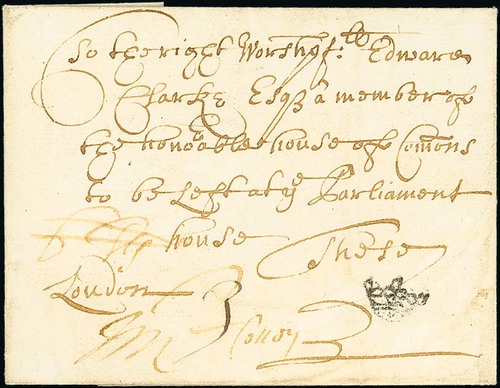 To the right Worshpfll: Edward
Clarke Esqr a member of
the honorable house of Comons
to be Left at ye Parliament
house These
London 3
Colley